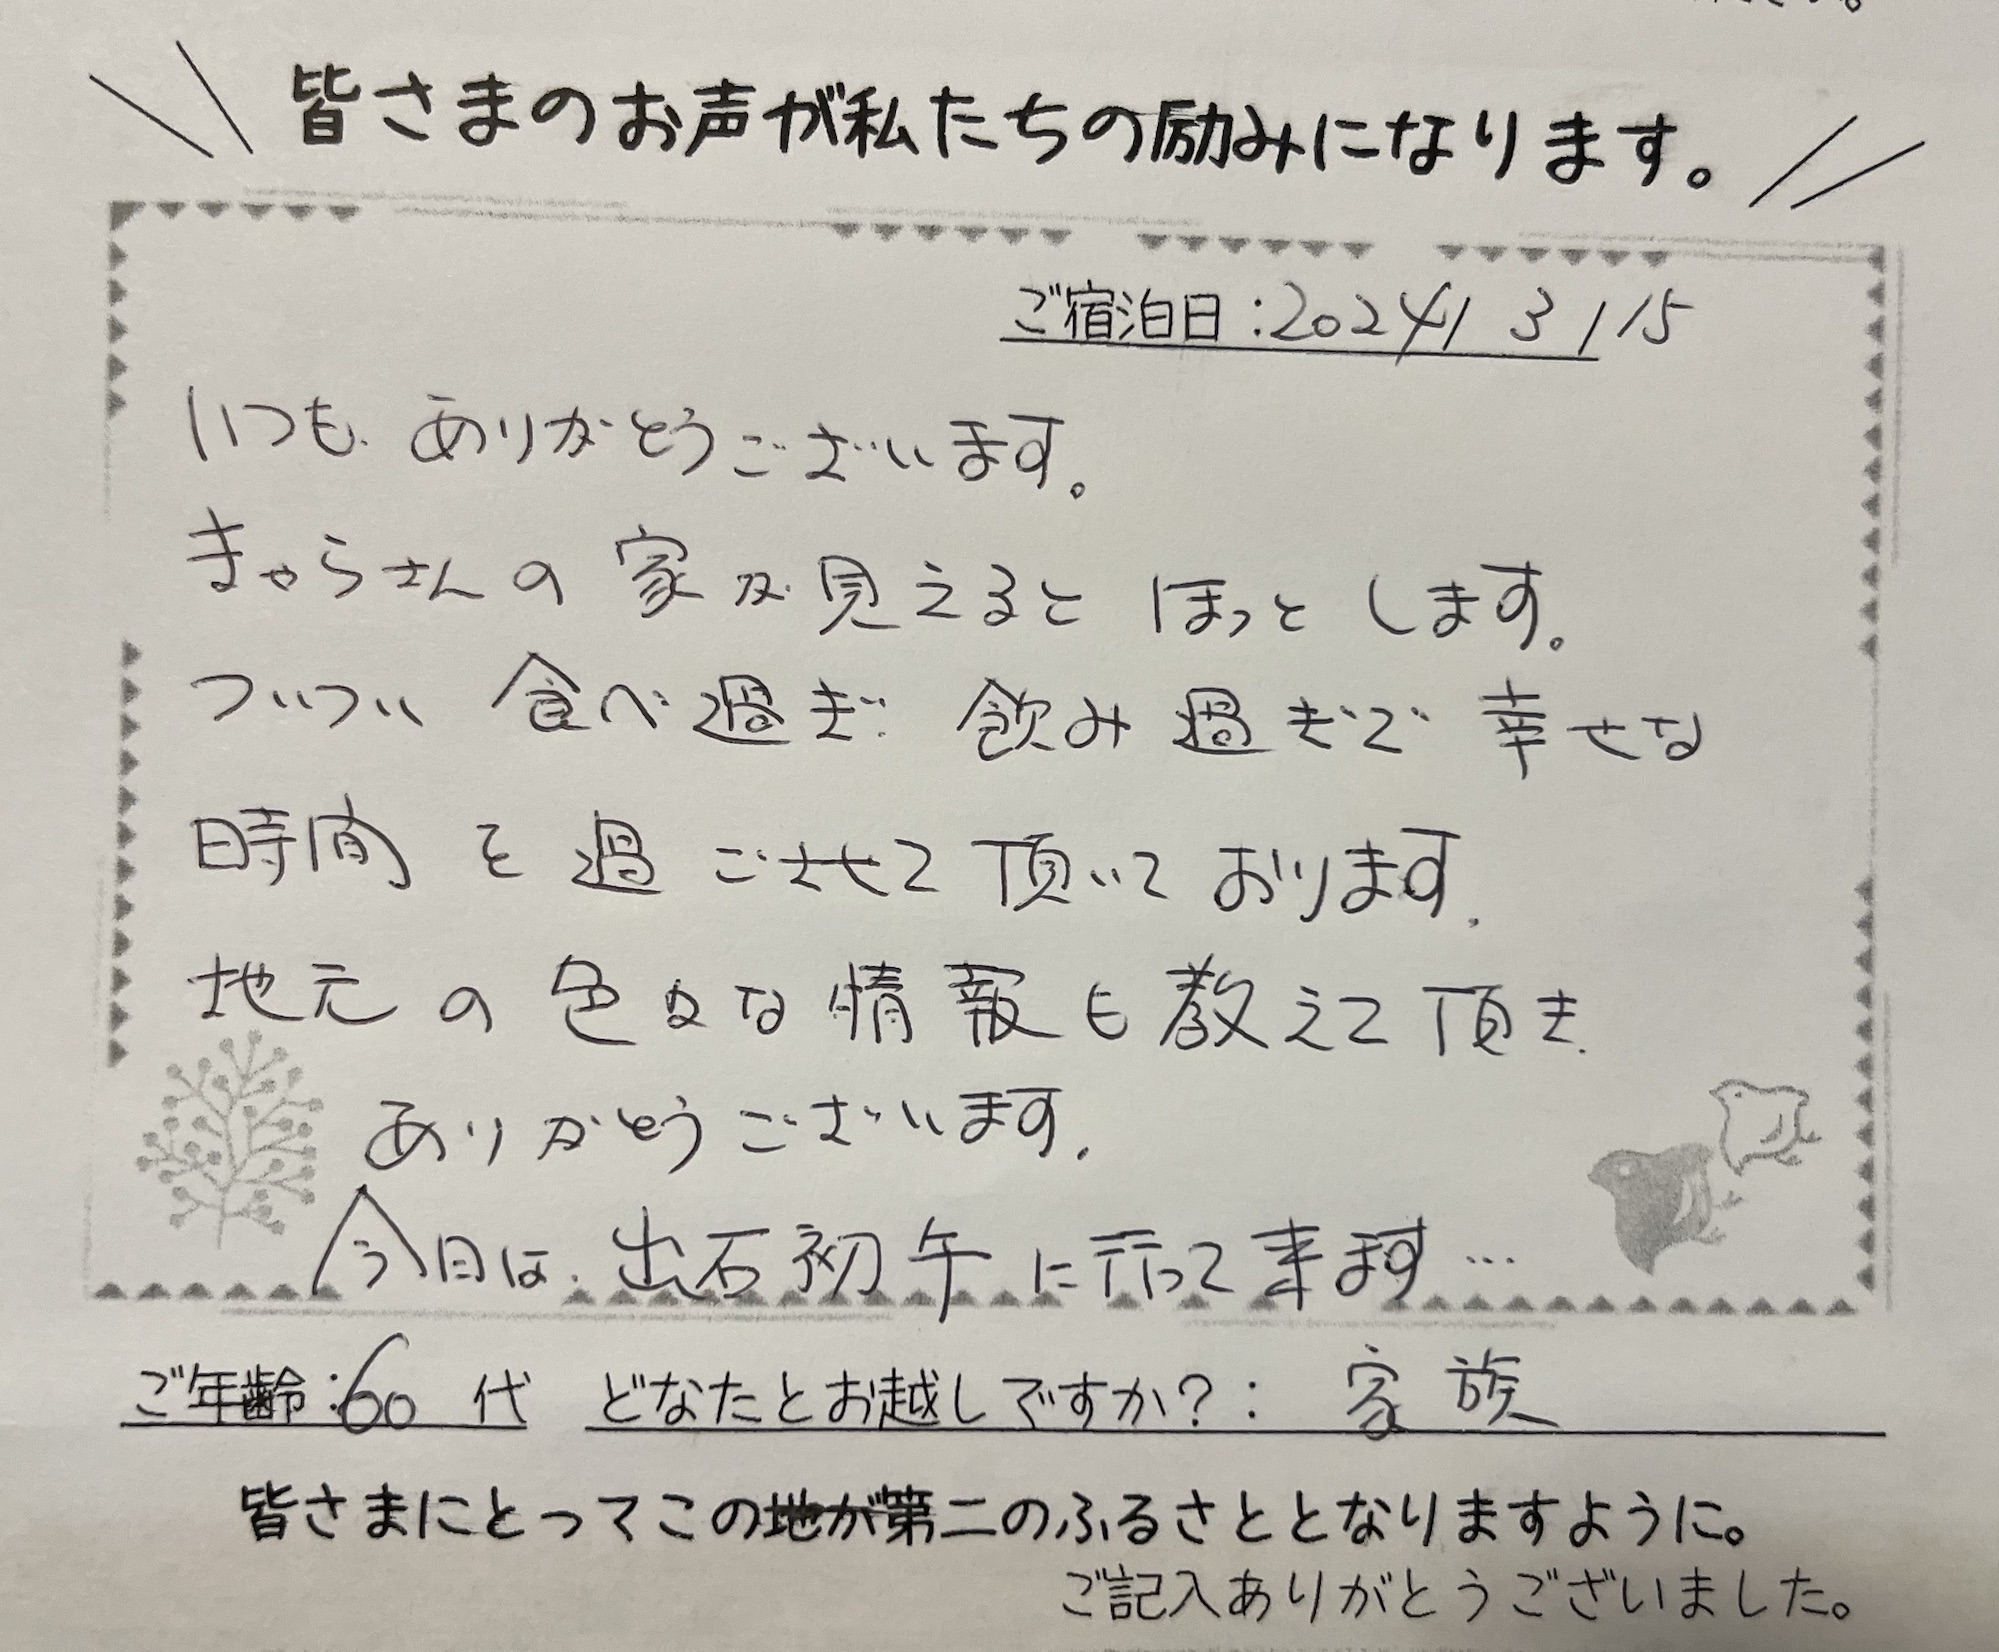 皆さまのお声が私たちの励みになります。
ご宿泊日：2024/3/15
いつも、ありがとうございます。
きゃらさんの家が見えるとほっとします。
ついつい食べ過ぎ、飲み過ぎで幸せな
時間を過ごさせて頂いております。
地元の色々な情報も教えて頂き、
ありがとうございます。
今日は、出石初午に行って来ます…
ご年齢：60代 どなたとお越しですか？：家族
皆さまにとってこの地が第二のふるさととなりますように。
ご記入ありがとうございました。